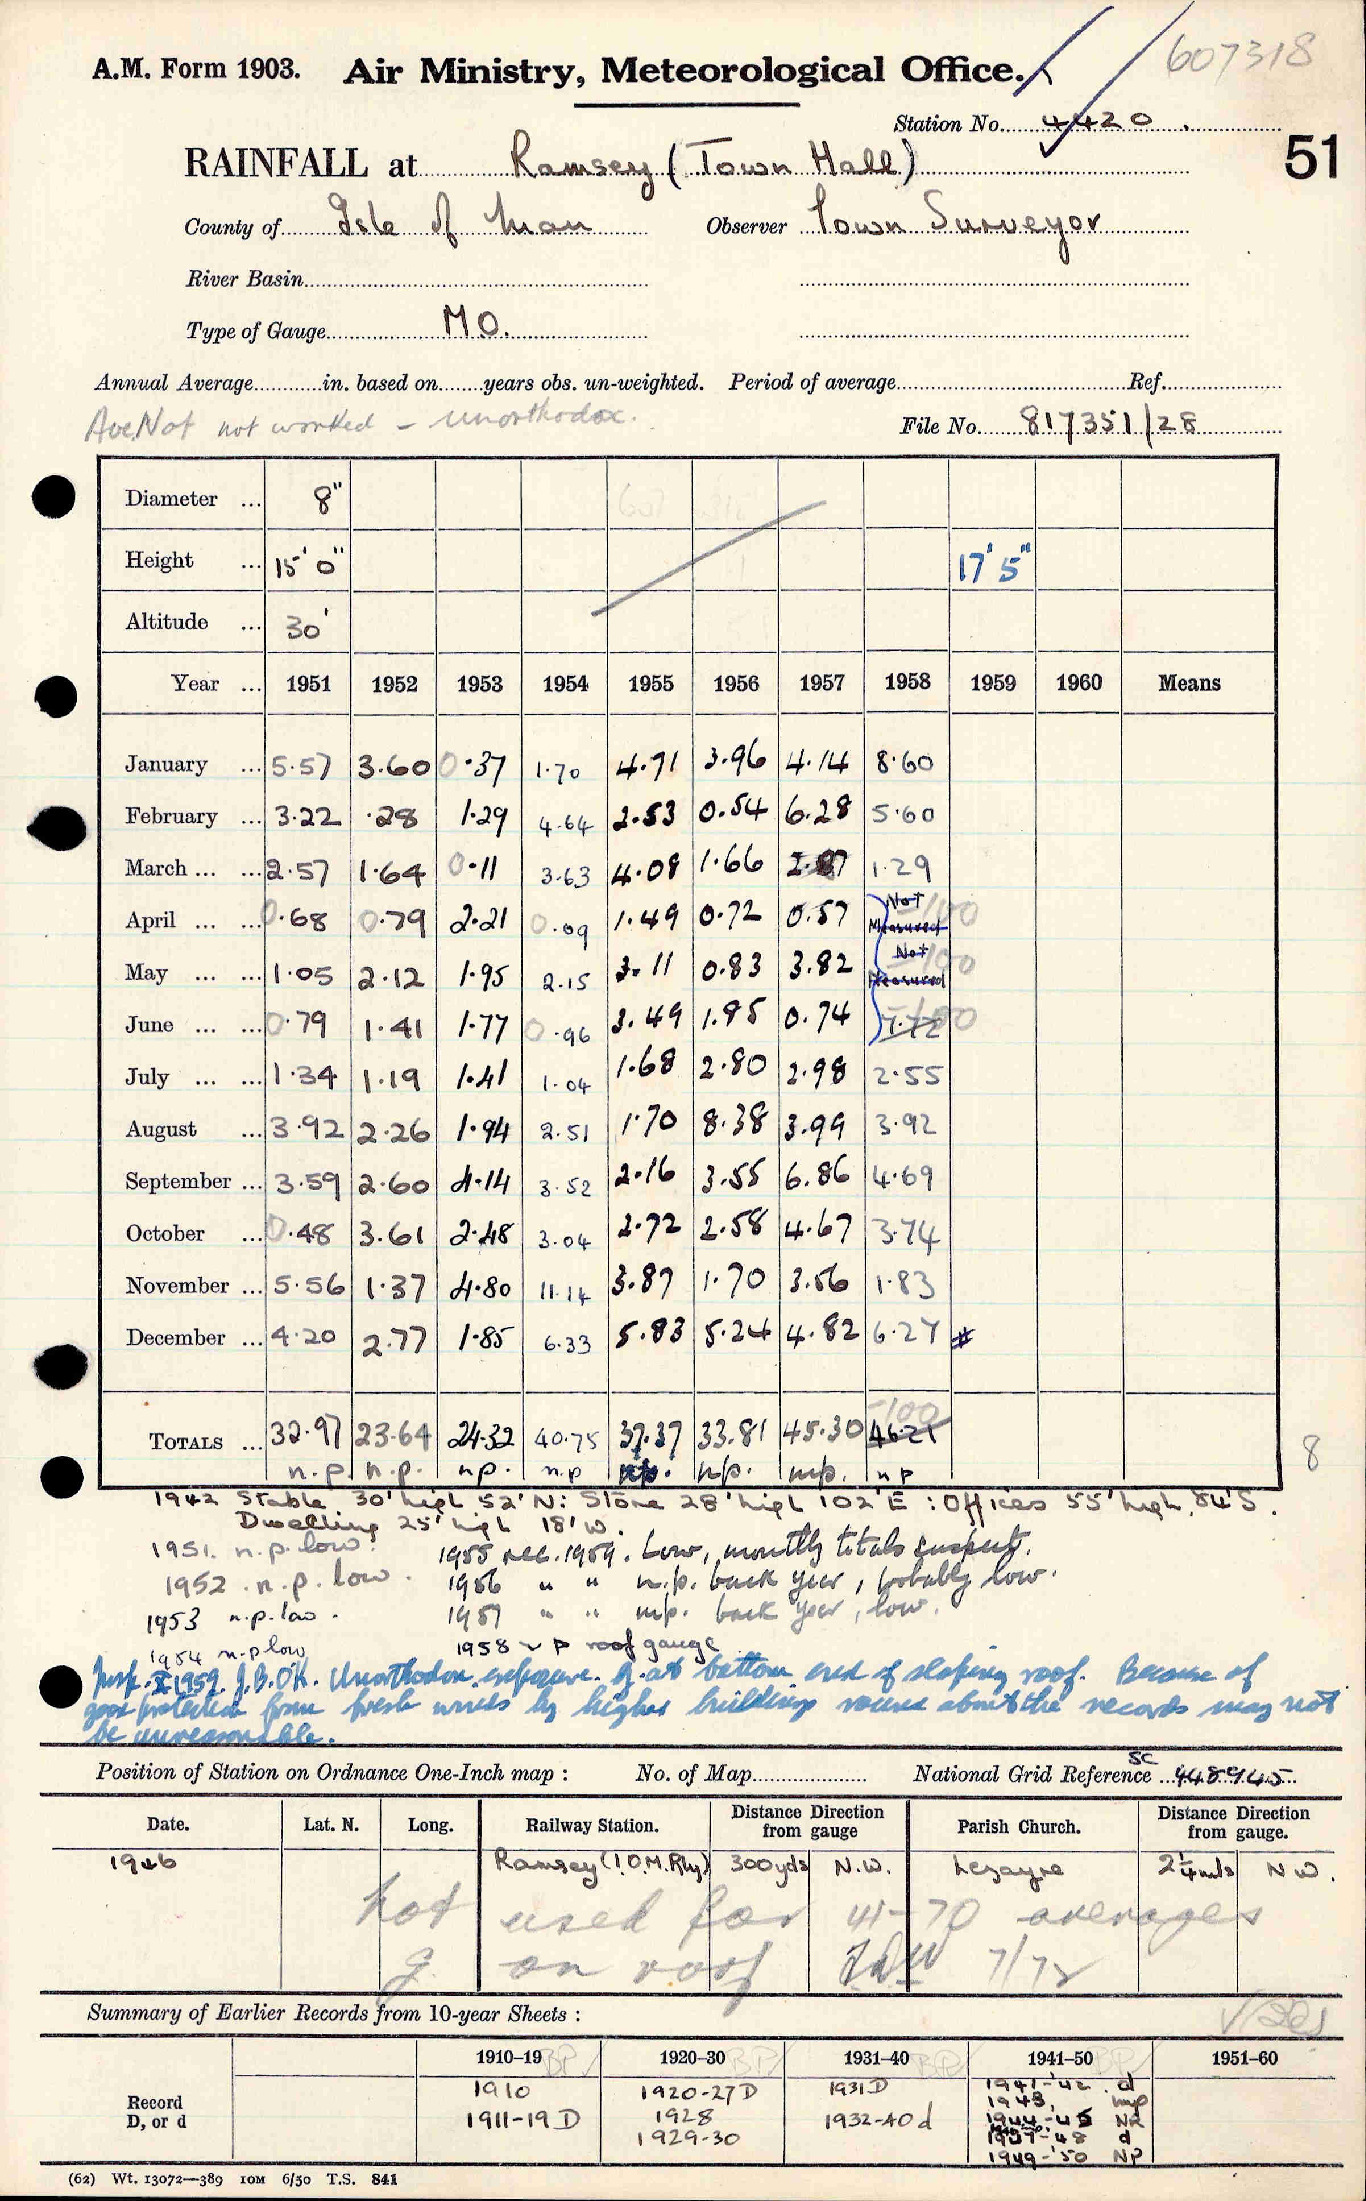 607318
A.M. Form 1903. Air Ministry, Meteorological Office.
Station No. 4420.
51
RAINFALL at Ramsey (Town Hall)
County of Isle of Man Observer Town Surveyor
River Basin
Type of Gauge M.O.
Annual Average in. based on years obs. un-weighted. Period of average Ref.
Ave Not not worked - unorthodox.
File No. 817351/28
Diameter ... 8"
Height ... 15' 0" 17' 5"
Altitude ... 30'
Year ... 1951 1952 1953 1954 1955 1956 1957 1958 1959 1960 Means
January ... 5.57 3.60 0.37 1.70 4.71 3.96 4.14 8.60
February ... 3.22 .28 1.29 4.64 2.53 0.54 6.28 5.60
March ... ... 2.57 1.64 0.11 3.63 4.08 1.66 2.87 1.29
April ... ... 0.68 0.79 2.21 0.09 1.49 0.72 0.57 Not Measured -100
May ... ... 1.05 2.12 1.95 2.15 3.11 0.83 3.82 Not Measured -100
June ... ... 0.79 1.41 1.77 0.96 3.49 1.85 0.74 7.72 -100
July ... ... 1.34 1.19 1.41 1.04 1.68 2.80 2.98 2.55
August ... 3.92 2.26 1.94 2.51 1.70 8.38 3.99 3.92
September ... 3.59 2.60 4.14 3.52 2.16 3.55 6.86 4.69
October ... 0.48 3.61 2.48 3.04 2.72 2.58 4.67 3.74
November ... 5.56 1.37 4.80 11.14 3.87 1.70 3.56 1.83
December ... 4.20 2.77 1.85 6.33 5.83 5.24 4.82 6.27 #
-100
TOTALS ... 32.97 23.64 24.32 40.75 37.37 33.81 45.30 46.21
n.p. n.p. n.p. n.p np. np. mp. n p
8
1942 Stable 30' high 52' N: Store 28' high 102' E : Offices 55' high 84' S.
Dwelling 25' high 18' W.
1951. n.p. low. 1955 rec. 1959. Low, monthly totals suspect.
1952. n.p. low. 1956 " " n.p. back year, probably low.
1953 n.p. low. 1957 " " mp. back year, low.
1954 n.p low 1958 n p roof gauge
Insp. X 1959. J.B. OK. Unorthodox exposure. g. at bottom end of sloping roof. Because of
good protection from fresh winds by higher buildings round about the records may not
be unreasonable.
Position of Station on Ordnance One-Inch map : No. of Map National Grid Reference SC 448945
Date. Lat. N. Long. Railway Station. Distance Direction from gauge Parish Church. Distance Direction from gauge.
1946 Ramsey (I.O.M. Rly) 300yds N.W. Lezayre 2¼mls N W.
not used for 41-70 averages
g. on roof 7/72
Summary of Earlier Records from 10-year Sheets :
1910–19 1920–30 1931–40 1941–50 1951–60
BP BP BP BP
Record D, or d
1910 1920-27 D 1931 D 1941-'42 d
1943, mp
1911-19 D 1928 1932-40 d 1944-45 NR
1929-30 48 d
1949-'50 NP
(62) Wt. 13072—389 IOM 6/50 T.S. 841